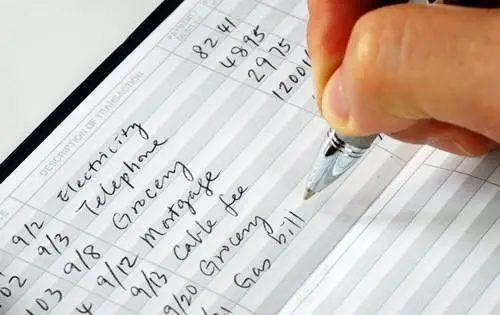 DESCRIPTION OF TRANSACTION PAYMENT
9/2 Electricity 82 41
02 9/3 Telephone 48 95
103 9/8 Grocery 29 75
4 9/12 Mortgage 1200
9/13 Cable fee
9/20 Grocery
Gas bill